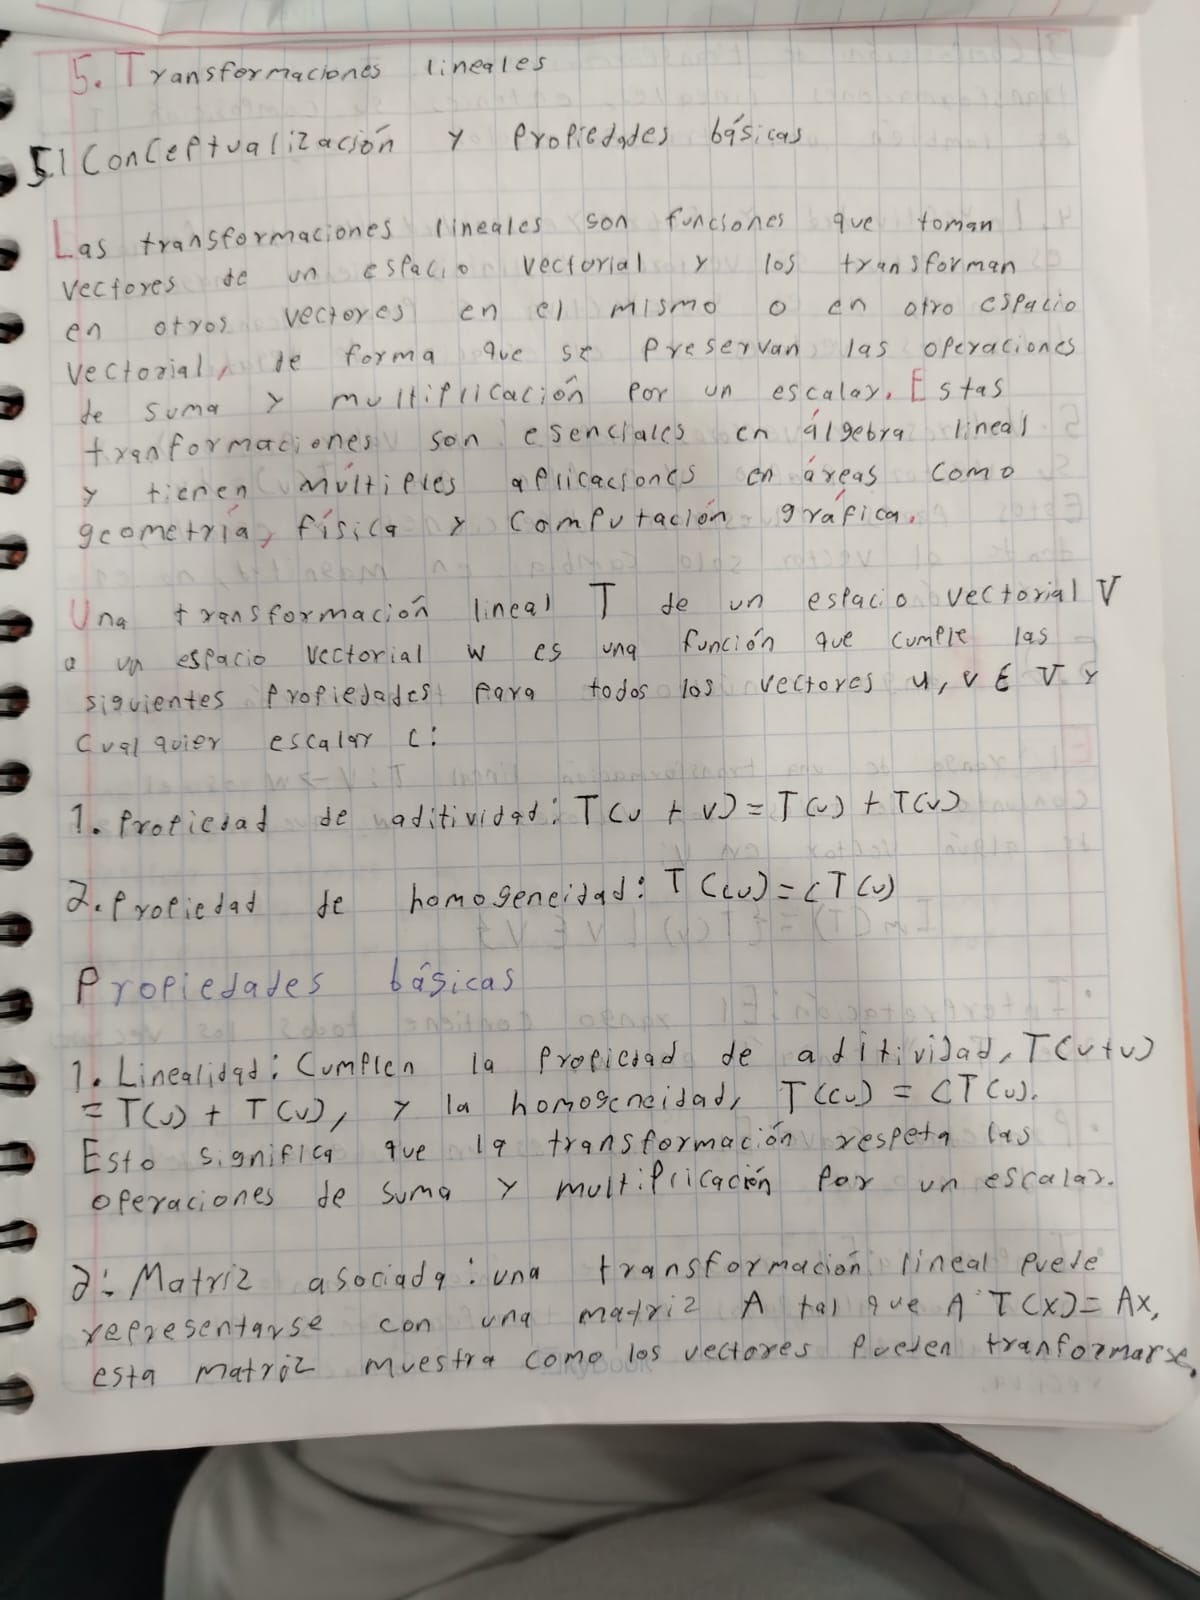 5. Transformaciones lineales
5.1 Conceptualización y propiedades básicas
Las transformaciones lineales son funciones que toman
vectores de un espacio vectorial y los transforman
en otros vectores en el mismo o en otro espacio
vectorial, de forma que se preservan las operaciones
de suma y multiplicación por un escalar. Estas
tranformaciones son esenciales en álgebra lineal
y tienen múltiples aplicaciones en áreas como
geometría, física y computación gráfica.
Una transformación lineal T de un espacio vectorial V
a un espacio vectorial W es una función que cumple las
siguientes propiedades para todos los vectores u, v ∈ V y
cualquier escalar c:
1. Propiedad de aditividad: T(u + v) = T(u) + T(v)
2. Propiedad de homogeneidad: T(cu) = cT(u)
Propiedades básicas
1. Linealidad: Cumplen la propiedad de aditividad, T(u+v)
= T(u) + T(v), y la homogeneidad, T(cu) = cT(u).
Esto significa que la transformación respeta las
operaciones de suma y multiplicación por un escalar.
2: Matriz asociada: una transformación lineal puede
representarse con una matriz A tal que A T(x) = Ax,
esta matriz muestra como los vectores pueden tranformarse.